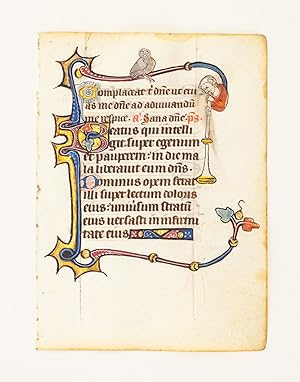 Complaceat t dñe ut eru
as me dñe ad adiuuandū
me respice. a. Sana dñe. ps.
Beatus qui intelli
git super egenum
et pauperem: in die ma
la liberauit eum dñs.
Dominus opem ferat
illi super lectum doloris
eius: uniuersum stratū
eius uersasti in infirmi
tate eius.